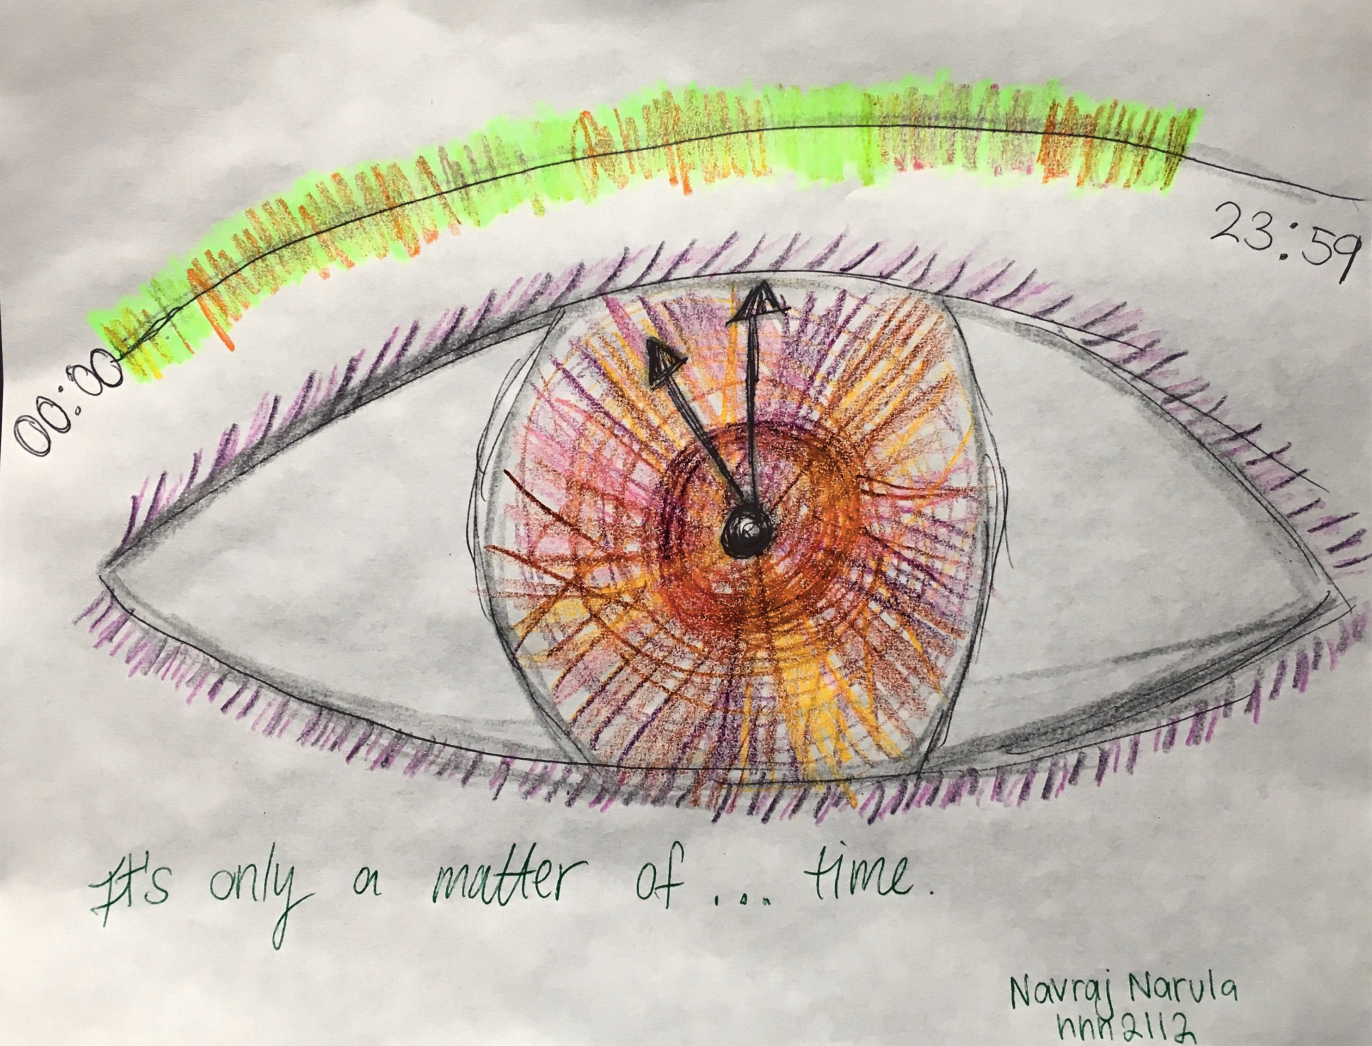 00:00
23:59
It's only a matter of ... time.
Navraj Narula
nnn2112